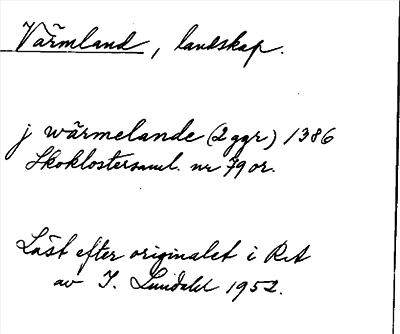 Värmland, landskap.
j wärmelande (2 ggr) 1386
Skoklostersaml. nr 79 or.
Läst efter originalet i RA
av I. Lundahl 1952.